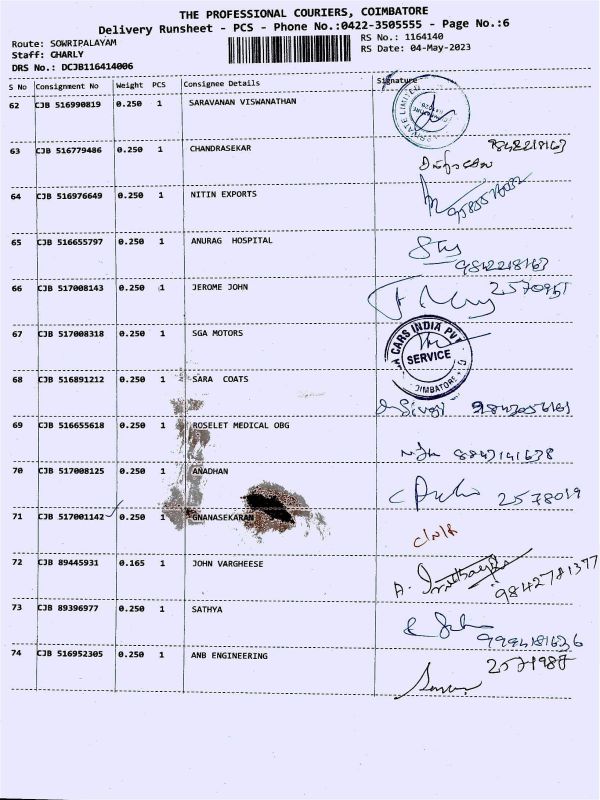 THE PROFESSIONAL COURIERS, COIMBATORE
Delivery Runsheet - PCS - Phone No.:0422-3505555 - Page No.:6
Route: SOWRIPALAYAM RS No.: 1164140
Staff: CHARLY RS Date: 04-May-2023
DRS No.: DCJB116414006
S No Consignment No Weight PCS Consignee Details Signature
62 CJB 516990819 0.250 1 SARAVANAN VISWANATHAN
63 CJB 516779486 0.250 1 CHANDRASEKAR
64 CJB 516976649 0.250 1 NITIN EXPORTS
65 CJB 516655797 0.250 1 ANURAG HOSPITAL
9842218167
66 CJB 517008143 0.250 1 JEROME JOHN 2570951
67 CJB 517008318 0.250 1 SGA MOTORS
CARS INDIA PVT
SERVICE
68 CJB 516891212 0.250 1 SARA COATS
69 CJB 516655618 0.250 1 ROSELET MEDICAL OBG
70 CJB 517008125 0.250 1 ANADHAN
2578019
71 CJB 517001142 0.250 1 GNANASEKARAN
72 CJB 89445931 0.165 1 JOHN VARGHEESE
9842781377
73 CJB 89396977 0.250 1 SATHYA
74 CJB 516952305 0.250 1 ANB ENGINEERING